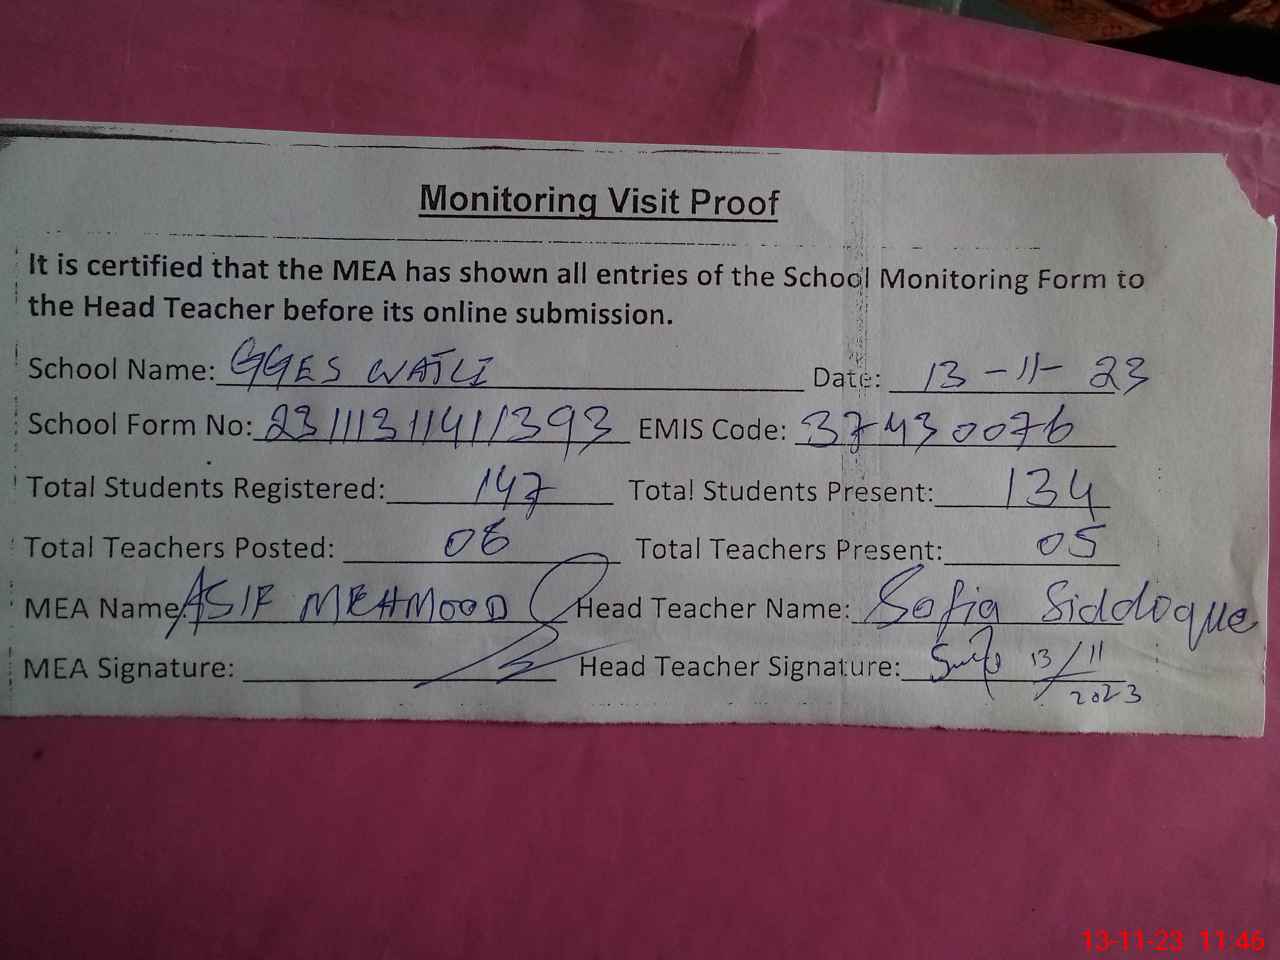 Monitoring Visit Proof
It is certified that the MEA has shown all entries of the School Monitoring Form to
the Head Teacher before its online submission.
School Name: GGES WATLI Date: 13-11-23
School Form No: 231113114111393 EMIS Code: 37430076
Total Students Registered: 147 Total Students Present: 134
Total Teachers Posted: 06 Total Teachers Present: 05
MEA Name: ASIF MEHMOOD Head Teacher Name: Sofia Siddoque
MEA Signature: Head Teacher Signature: 13/11
2023
13-11-23 11:46